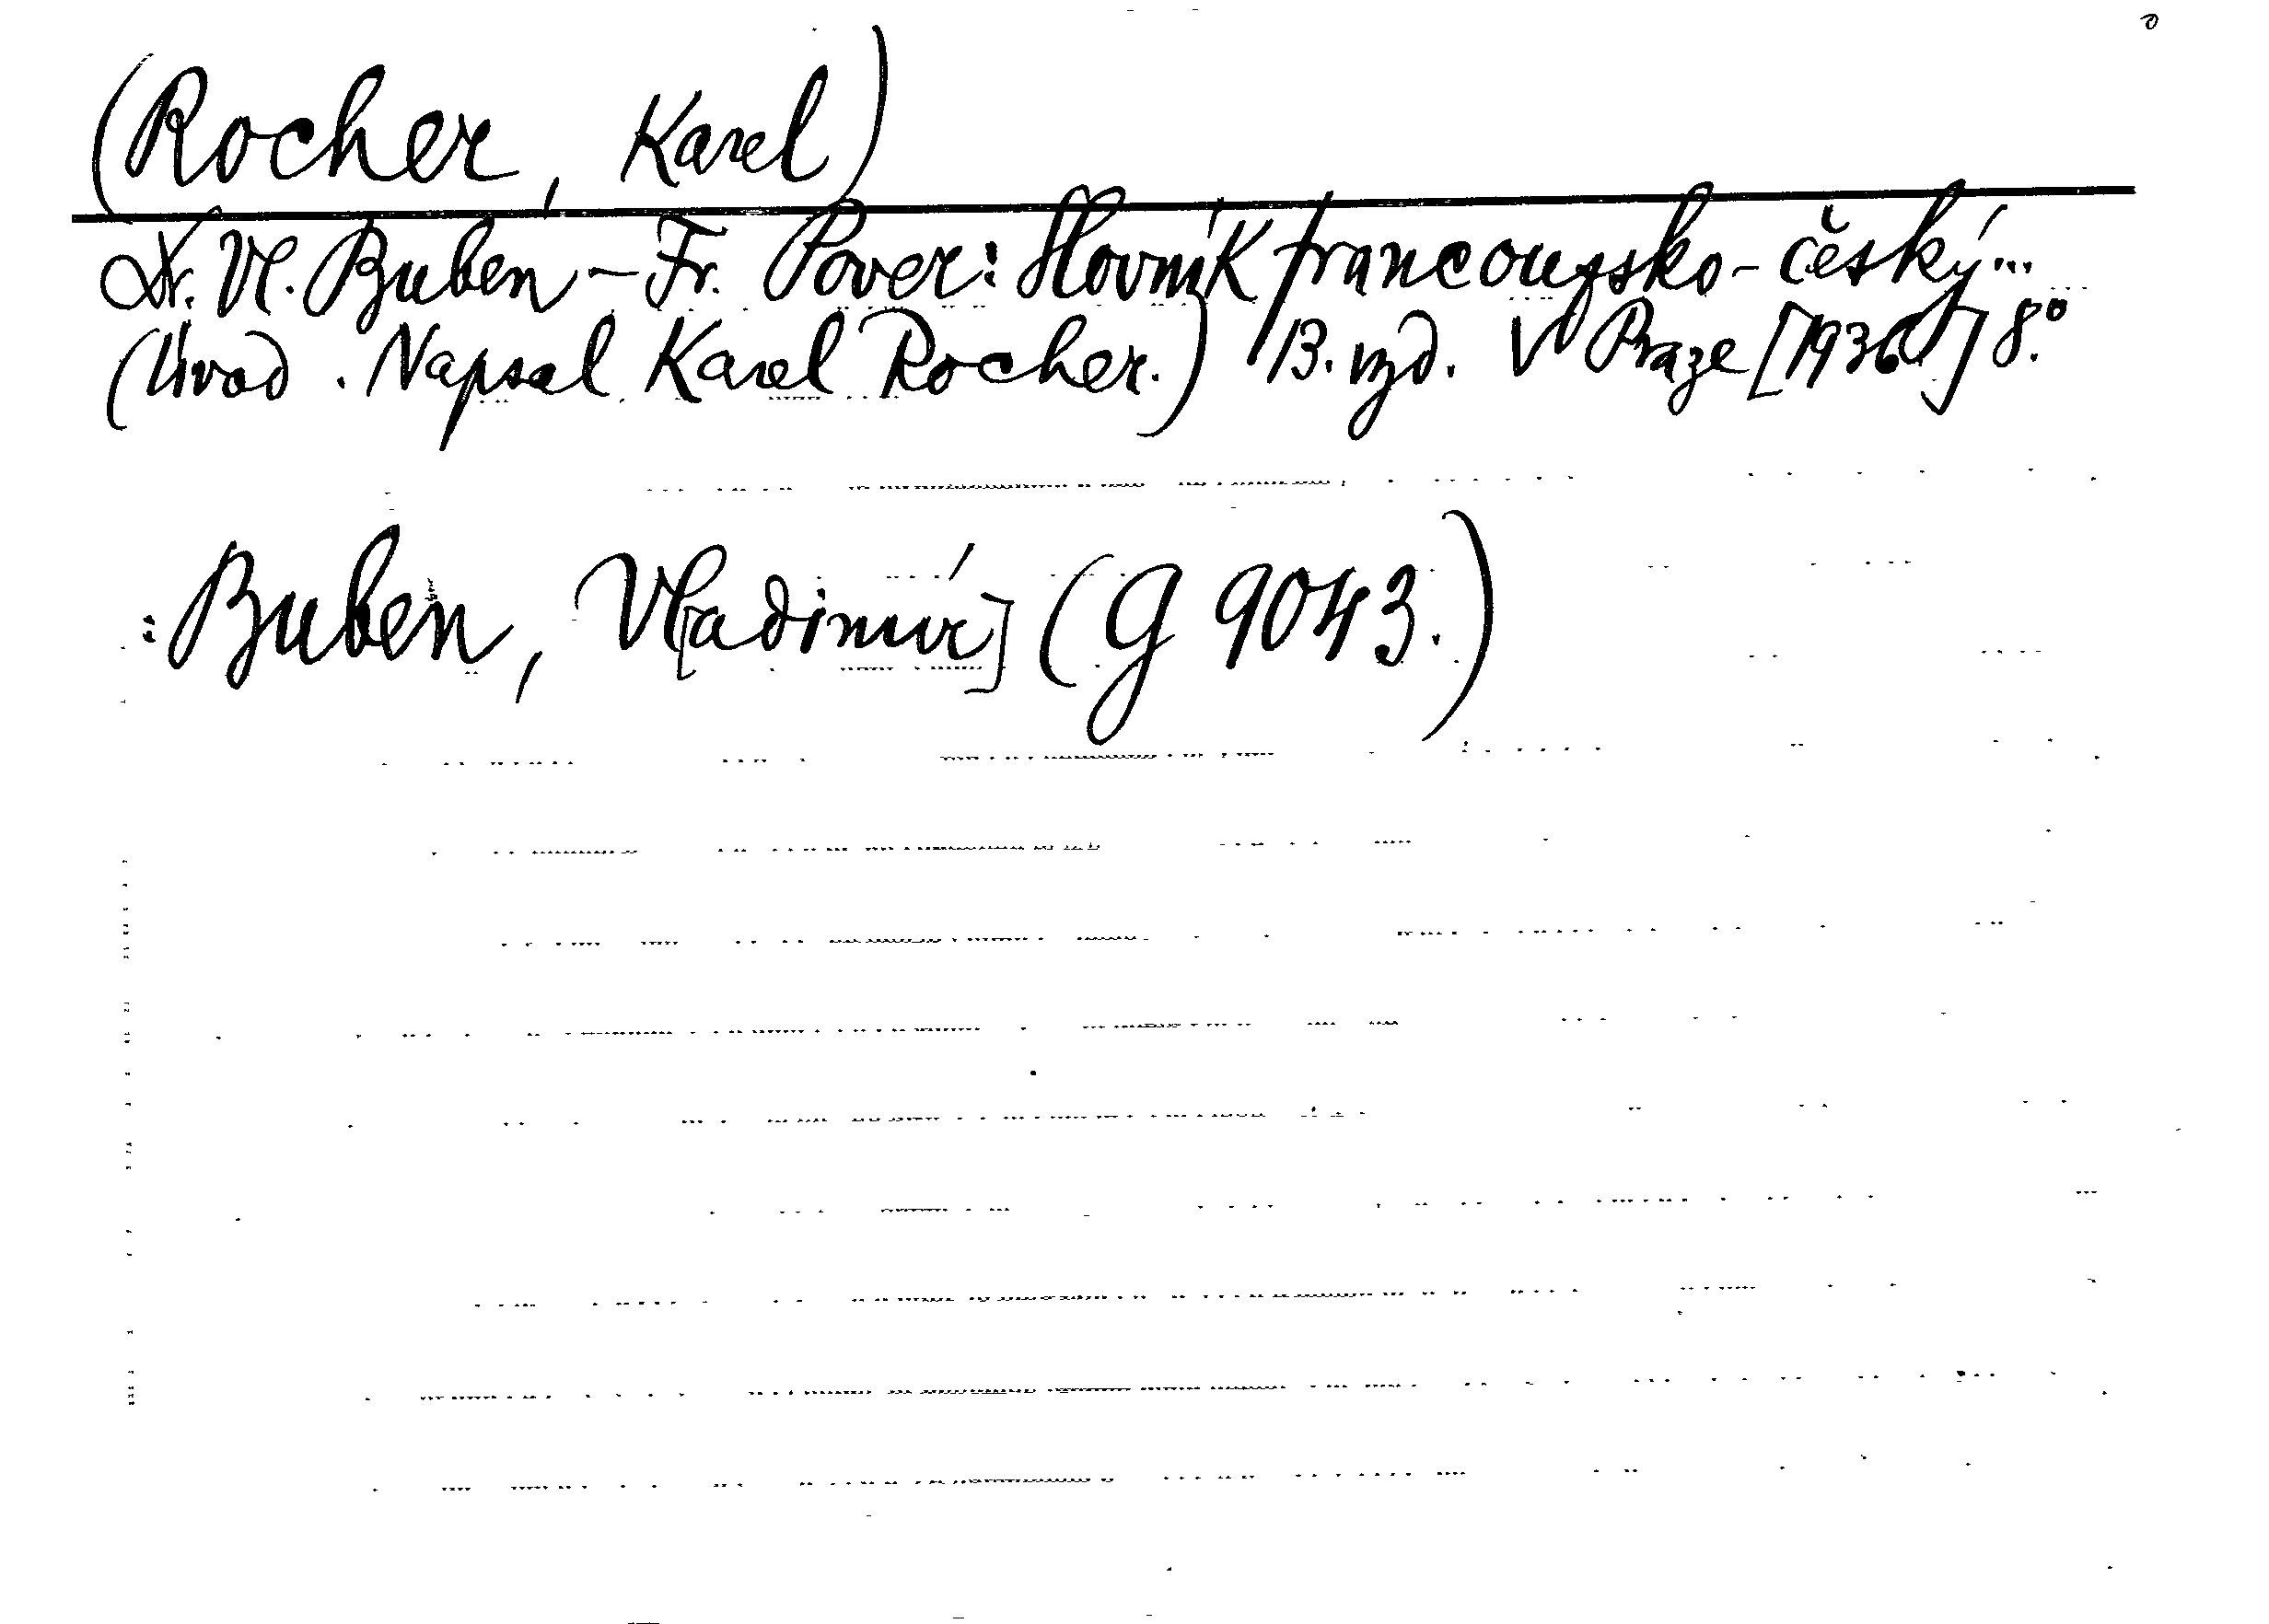 (Rocher, Karel)
Dr. Vl. Buben - Fr. Pover: Slovník francouzsko-český...
(Úvod. Napsal Karel Rocher.) 13. vyd. V Praze [1936] 8°.
: Buben, Vl[adimír] (G 9043.)